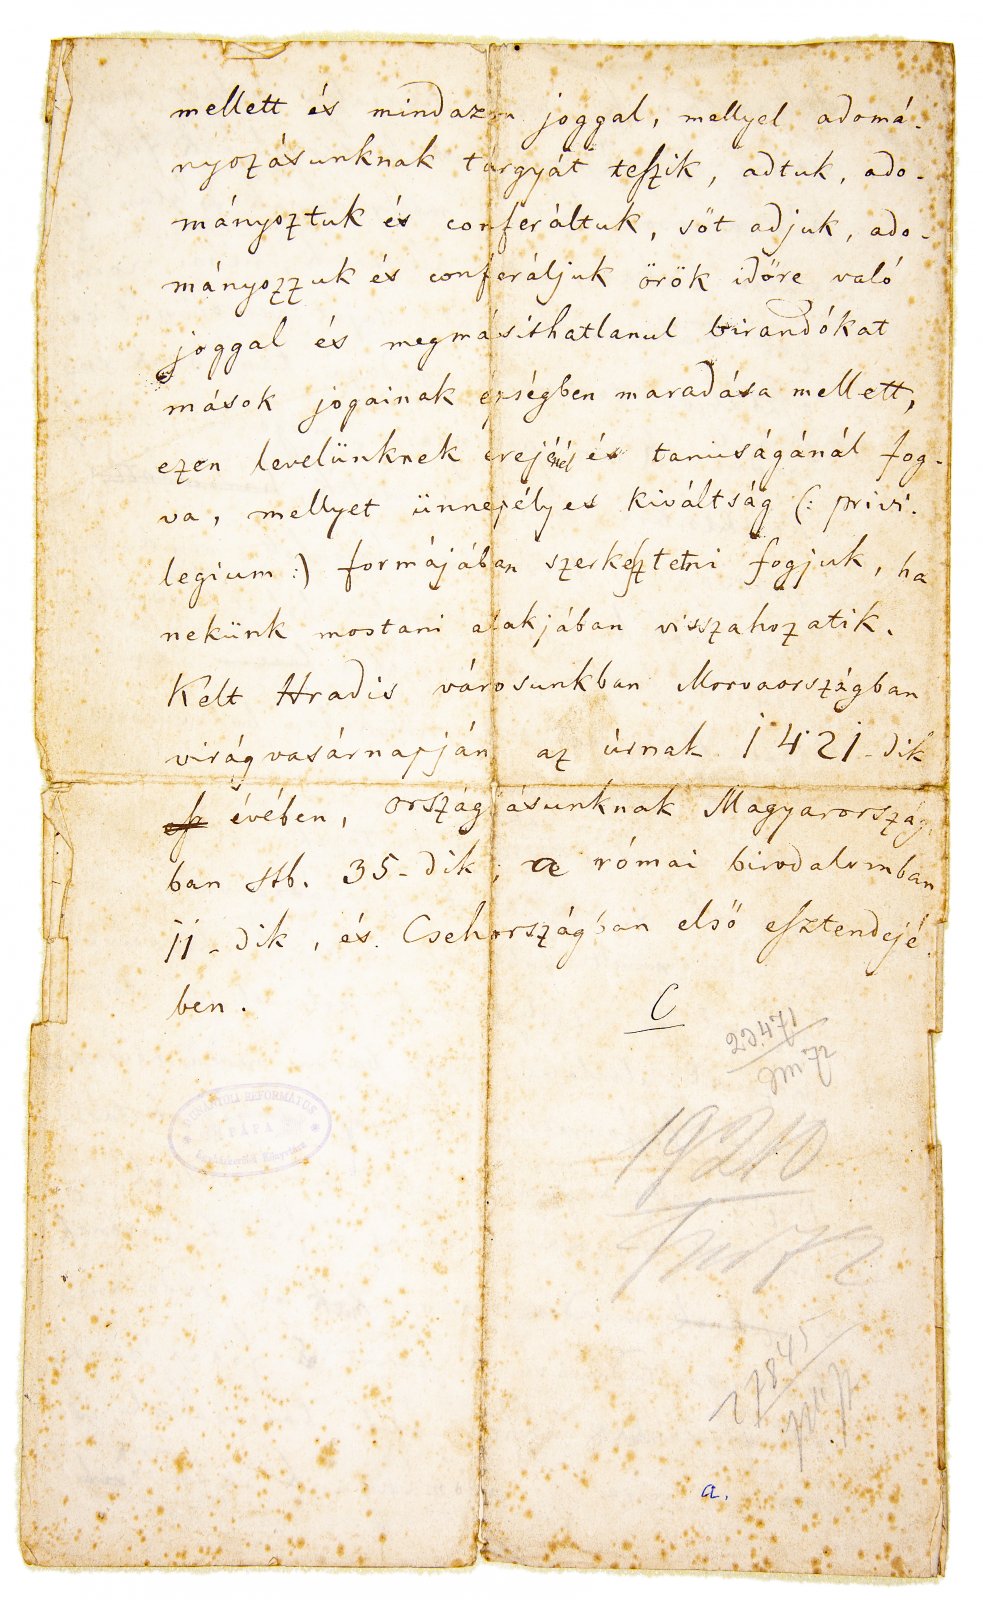 mellett és mindazon joggal, mellyel adomá-
nyozásunknak tárgyát teszik, adtuk, ado-
mányoztuk és conferáltuk, sőt adjuk, ado-
mányozzuk és conferáljuk örök időre való
joggal és megmásithatlanul birandókat
mások jogainak épségben maradása mellett,
ezen levelünknek erejénél és tanuságánál fog-
va, mellyet ünnepélyes kiváltság (: privi-
legium :) formájában szerkesztetni fogjuk, ha
nekünk mostani alakjában visszahozatik.
Kelt Hradis városunkban Morvaországban
virágvasárnapján az úrnak 1421-dik
évében, országlásunknak Magyarország-
ban stb. 35-dik, a római birodalomban
11-dik, és Csehországban első esztendejé-
ben.
C
20.471
DUNÁNTÚLI REFORMÁTUS
PÁPA
Könyvtára
19210
27845
a.